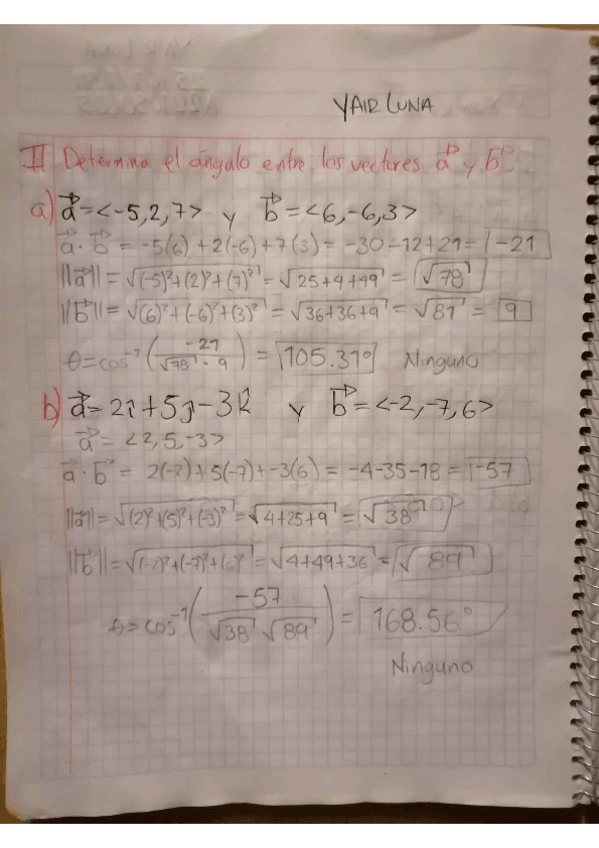 YAIR LUNA
II Determina el ángulo entre los vectores a⃗ y b⃗.
a) a⃗=<-5,2,7> y b⃗=<6,-6,3>
a⃗·b⃗ = -5(6)+2(-6)+7(3) = -30-12+21 = -21
||a⃗|| = √(-5)²+(2)²+(7)² = √25+4+49 = √78
||b⃗|| = √(6)²+(-6)²+(3)² = √36+36+9 = √81 = 9
θ=cos⁻¹(-21/√78 - 9) = 105.31° Ninguno
b) a⃗=2î+5ĵ-3k̂ y b⃗=<-2,-7,6>
a⃗= <2,5,-3>
a⃗·b⃗ = 2(-2)+5(-7)+-3(6) = -4-35-18 = -57
||a⃗|| = √(2)²+(5)²+(-3)² = √4+25+9 = √38
||b⃗|| = √(-2)²+(-7)²+(6)² = √4+49+36 = √89
θ=cos⁻¹(-57/√38 √89) = 168.56°
Ninguno